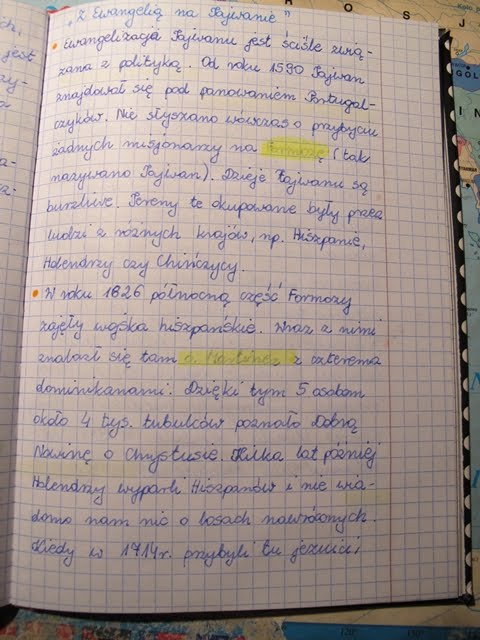 „Z Ewangelią na Tajwanie"
• Ewangelizacja Tajwanu jest ściśle zwią-
zana z polityką. Od roku 1590 Tajwan
znajdował się pod panowaniem Portugal-
czyków. Nie słyszano wówczas o przybyciu
żadnych misjonarzy na Formozę (tak
nazywano Tajwan). Dzieje Tajwanu są
burzliwe. Tereny te okupowane były przez
ludzi z różnych krajów, np. Hiszpanie,
Holendrzy czy Chińczycy.
• W roku 1626 północną część Formozy
zajęły wojska hiszpańskie. Wraz z nimi
znalazł się tam o. Martinez z czterema
dominikanami. Dzięki tym 5 osobom
około 4 tys. tubulców poznało Dobrą
Nowinę o Chrystusie. Kilka lat później
Holendrzy wyparli Hiszpanów i nie wia-
domo nam nic o losach nawróconych.
Kiedy w 1714r. przybyli tu jezuici,
jest
GÓL
120°